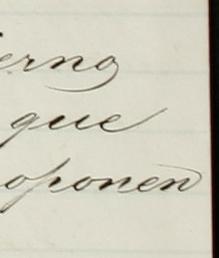 ierno
que
oponen